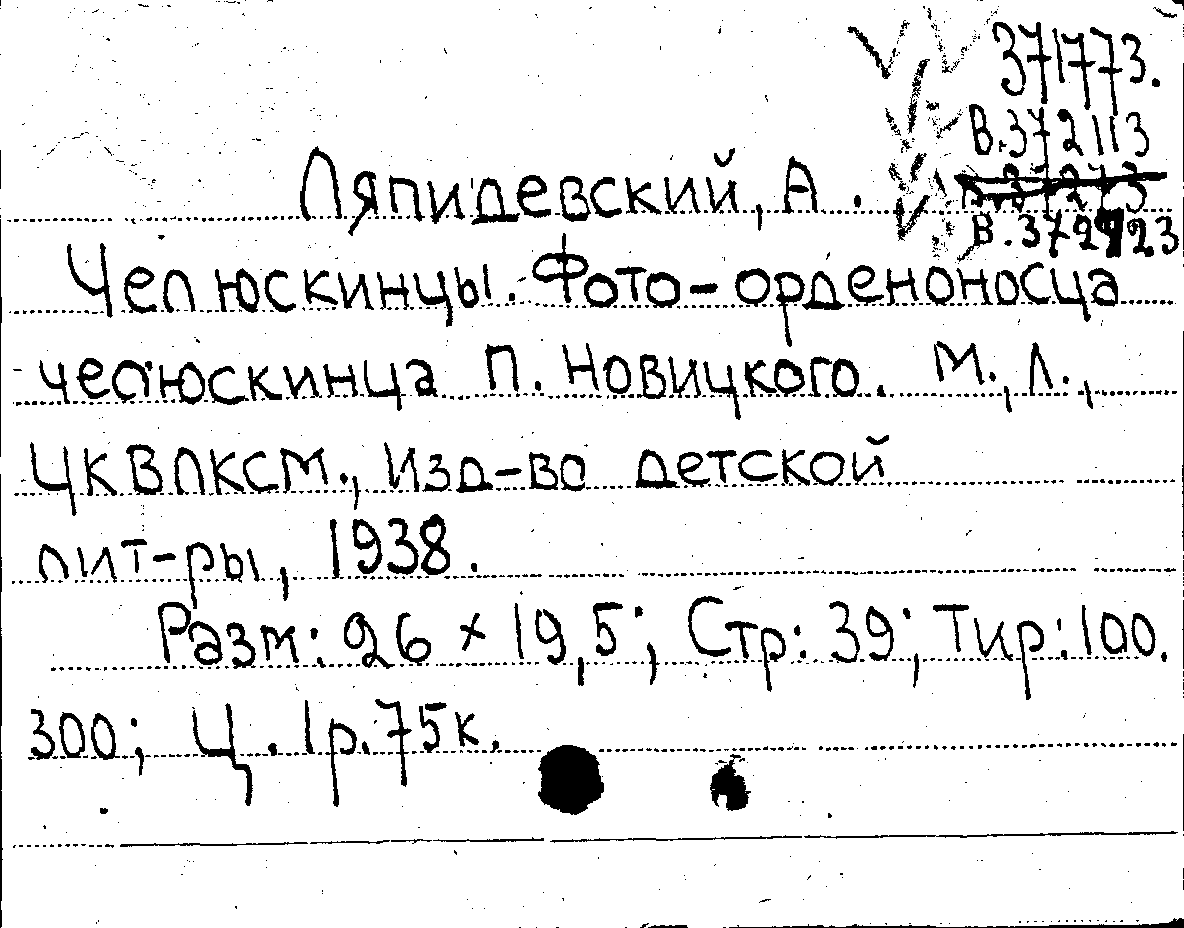 371773.
В.372113
Ляпидевский, А.
Челюскинцы. Фото-орденоносца
челюскинца П. Новицкого. М., Л.,
ЦКВЛКСМ., Изд-во детской
лит-ры, 1938.
Разм: 26 × 19,5; Стр: 39; Тир: 100.
300; Ц. 1р.75к.